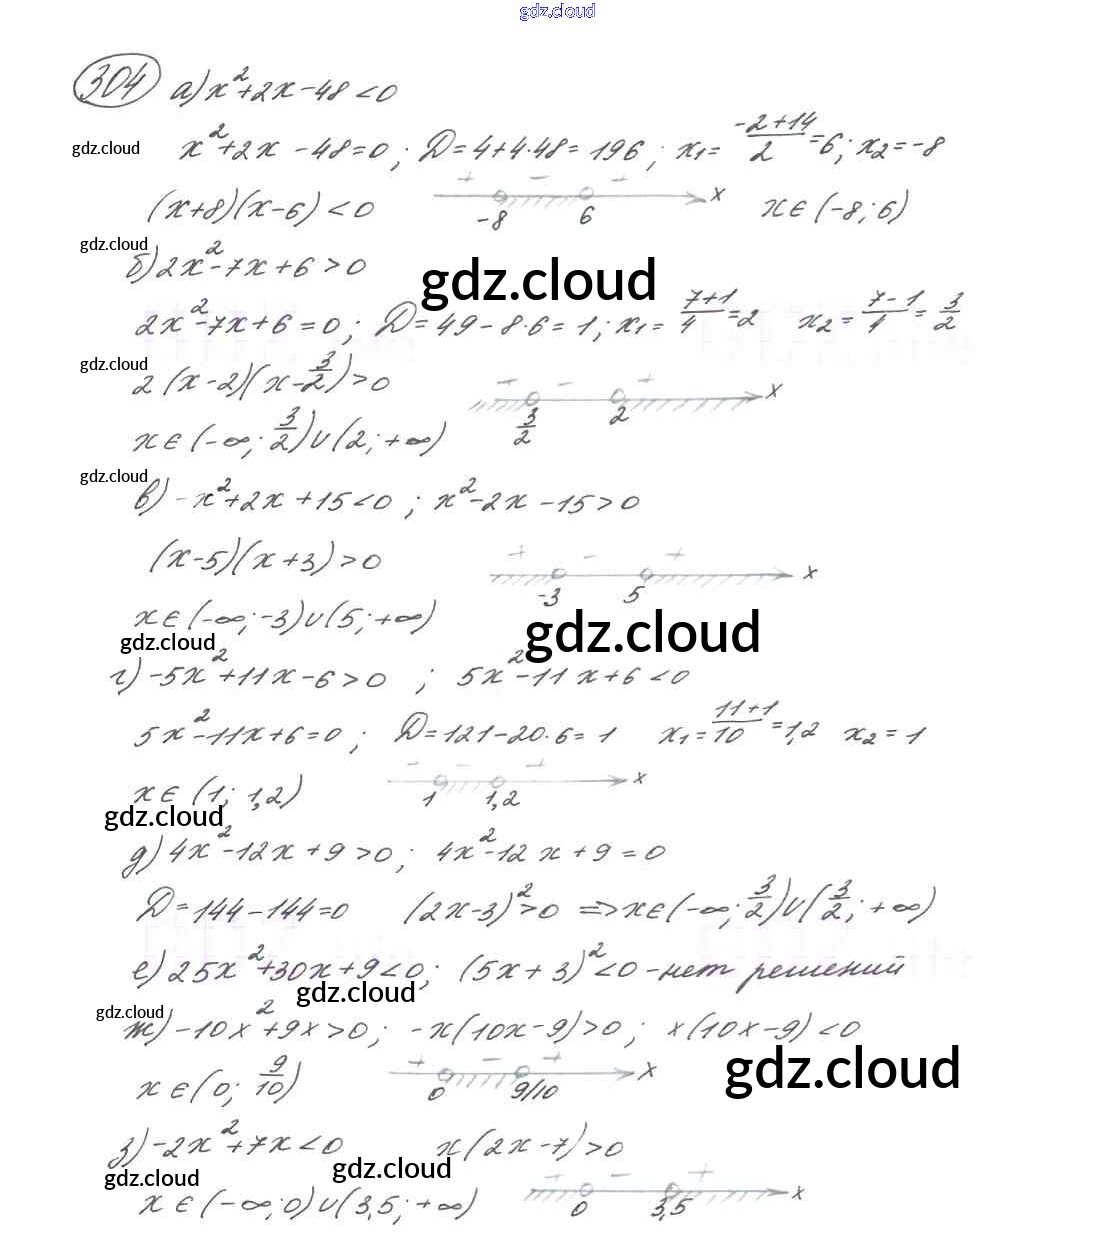 gdz.cloud
304 а) x²+2x-48<0
gdz.cloud x²+2x-48=0; D=4+4·48=196; x₁=(-2+14)/2=6; x₂=-8
(x+8)(x-6)<0 + - + x -8 6 x∈(-8;6)
gdz.cloud
б) 2x²-7x+6>0
gdz.cloud
2x²-7x+6=0; D=49-8·6=1; x₁=(7+1)/4=2 x₂=(7-1)/4=3/2
gdz.cloud
2(x-2)(x-3/2)>0 + - + x 3/2 2
x∈(-∞;3/2)∪(2;+∞)
gdz.cloud
в) -x²+2x+15<0; x²-2x-15>0
(x-5)(x+3)>0 + - + x -3 5
x∈(-∞;-3)∪(5;+∞)
gdz.cloud
gdz.cloud
г) -5x²+11x-6>0; 5x²-11x+6<0
5x²-11x+6=0; D=121-20·6=1 x₁=(11+1)/10=1,2 x₂=1
x∈(1; 1,2) + - + x 1 1,2
gdz.cloud
д) 4x²-12x+9>0; 4x²-12x+9=0
D=144-144=0 (2x-3)²>0 => x∈(-∞;3/2)∪(3/2;+∞)
е) 25x²+30x+9<0; (5x+3)²<0 - нет решений
gdz.cloud
gdz.cloud
ж) -10x²+9x>0; -x(10x-9)>0; x(10x-9)<0
gdz.cloud
x∈(0; 9/10) + - + x 0 9/10
з) -2x²+7x<0 x(2x-7)>0
gdz.cloud
gdz.cloud
x∈(-∞;0)∪(3,5;+∞) + - + x 0 3,5